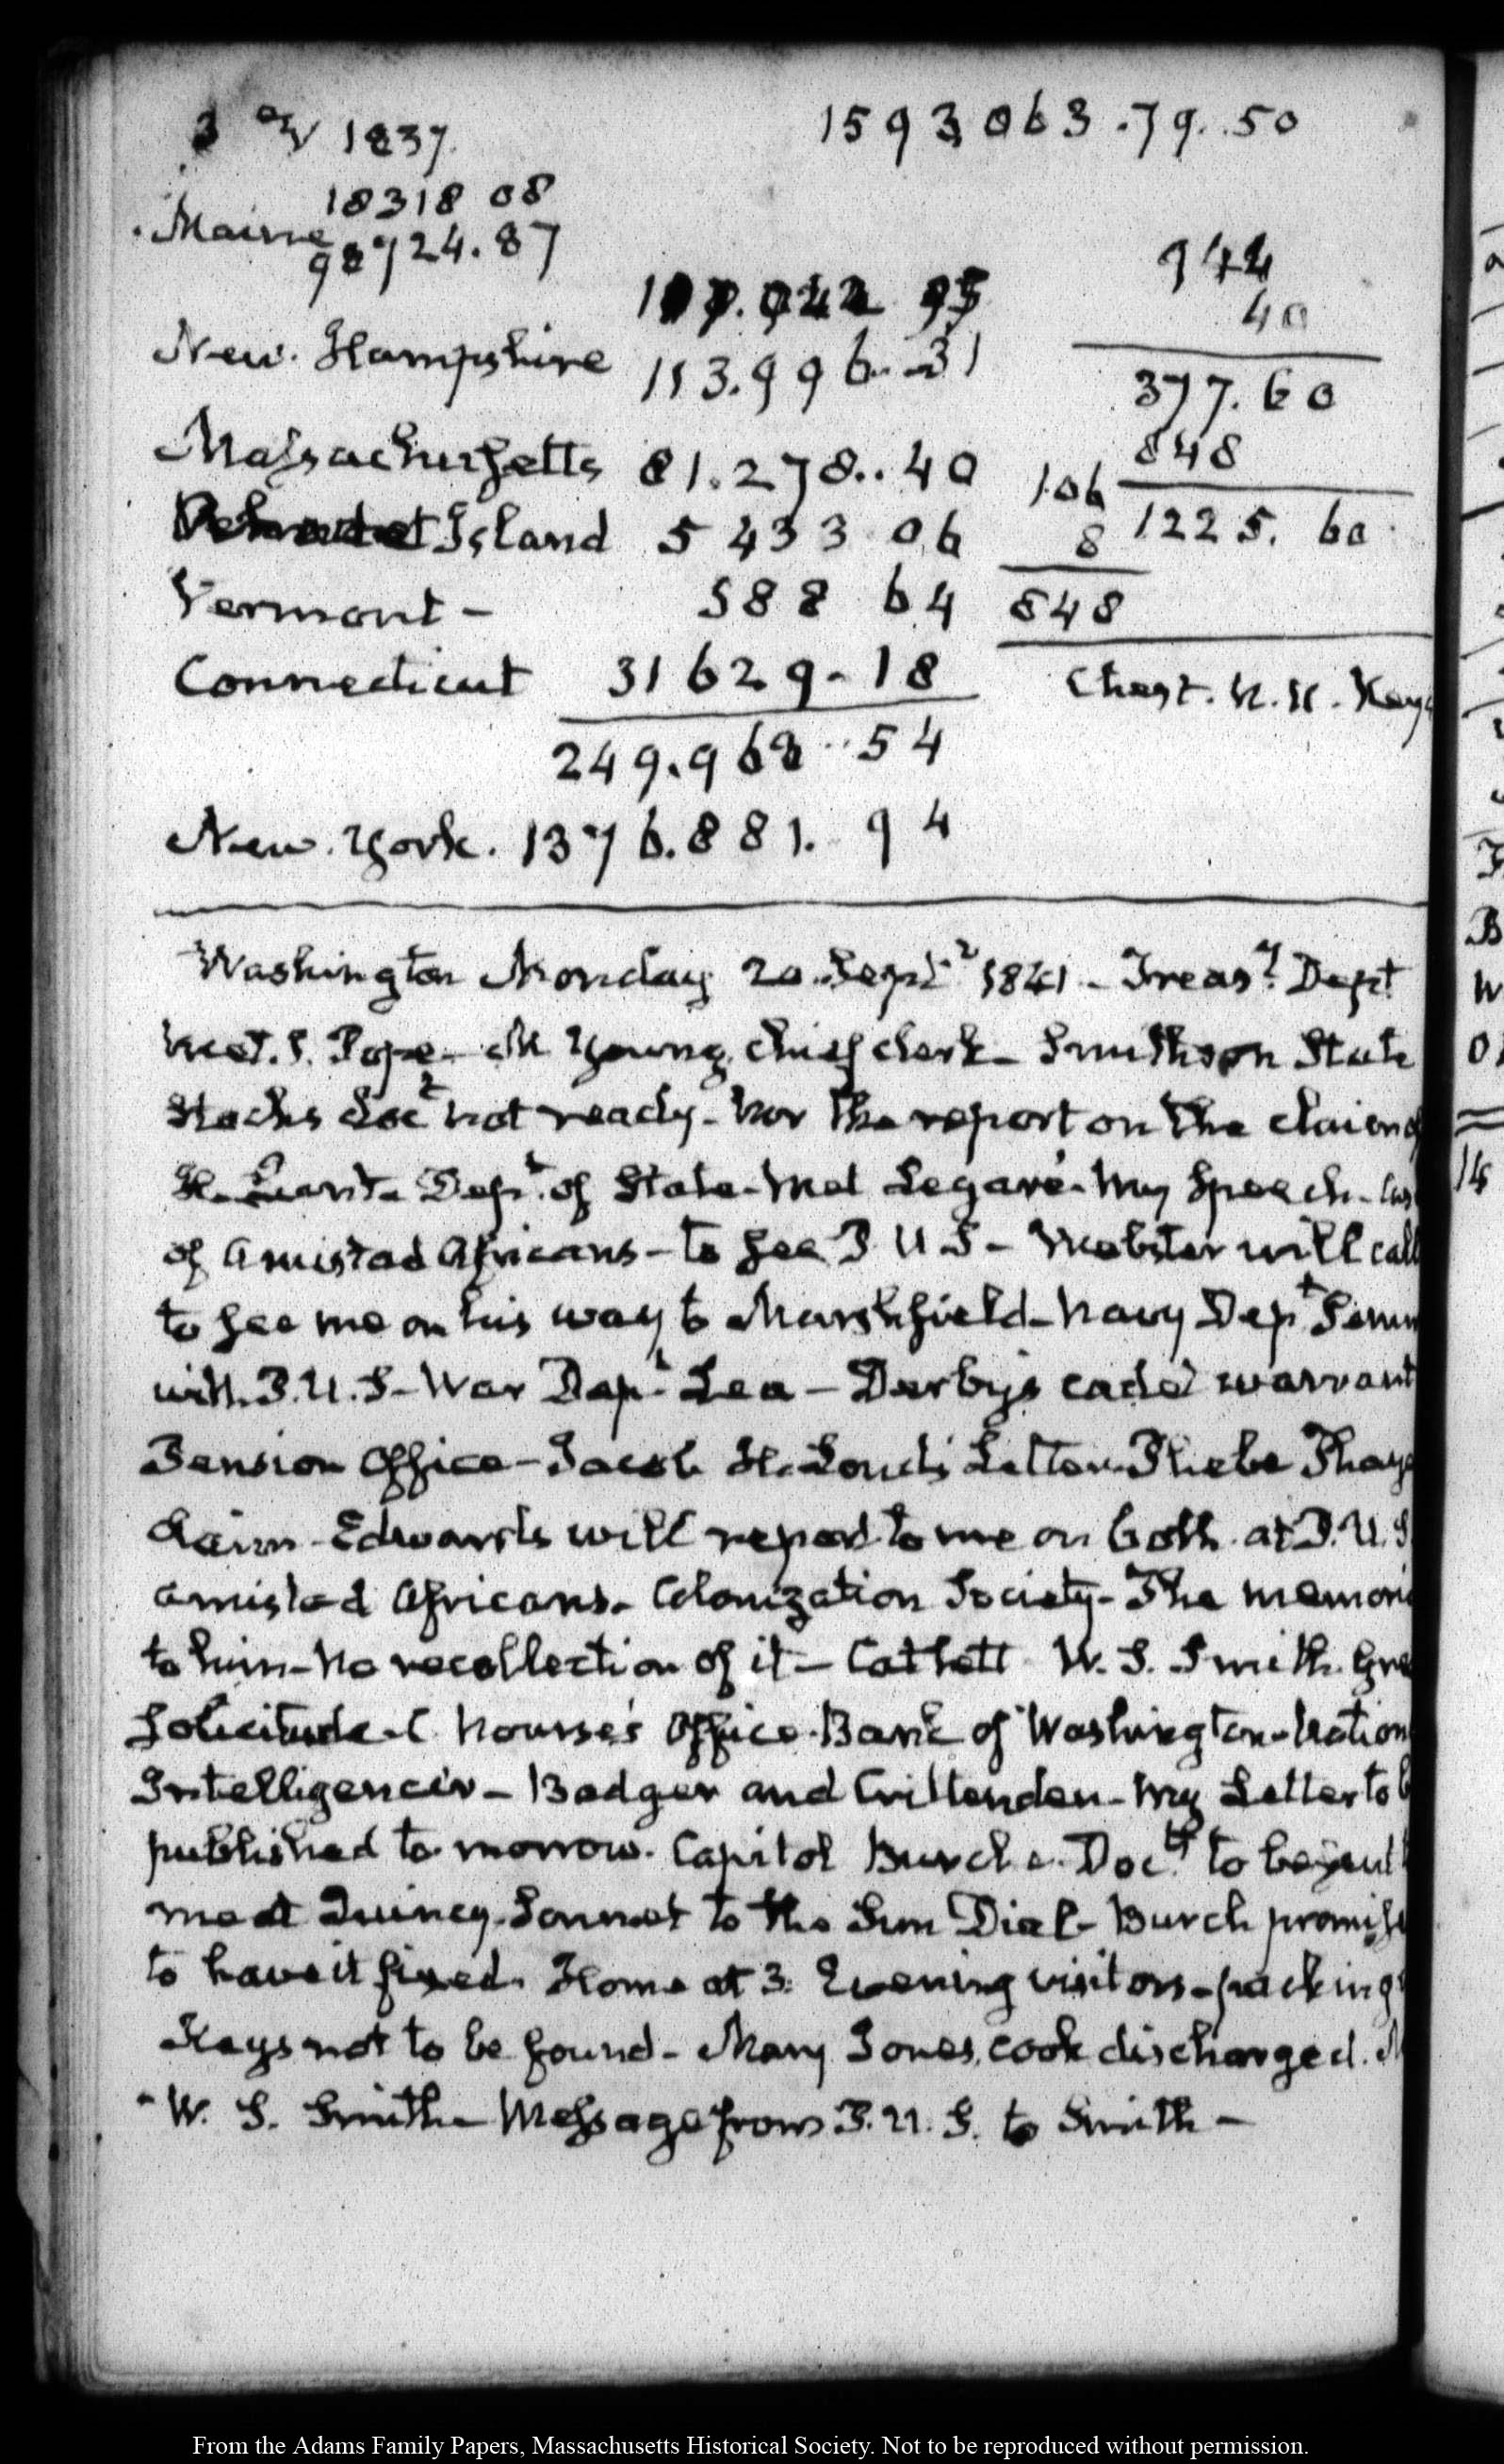 1837.
1593063.79.50
18318 08
Maine 98724.87
944
40
New Hampshire 113.996..31
377.60
Massachusetts 81.278..40
848
106
Island 5 433 06
8
1225.60
Vermont - 588 64
848
Connecticut 31629-18
Chest. Keys
249.968..54
New York. 1376.881.94
Washington Monday 20 Septr 1841 - Treasy Dept
Met. Pope - Mr Young chief clerk - Smithson State
Stocks doct not ready - Nor the report on the claim of
Dept of State - Met Legaré - My Speech -
of Amistad Africans - to see P U S - Webster will call
to see me on his way to Marshfield - Navy Dept
with P. U. S - War Dept Lea - Darby's cadet warrant
Pension Office - Jacob H. Loud's Letter Phebe Thay
claim - Edwards will report to me on both. at P. U. S
Amistad Africans - Colonization Society - The memori
to him - no recollection of it - W. S. Smith. Gre
Solicitude - C Nourse's Office - Bank of Washington - Nation
Intelligencer - Badger and Crittenden - My Letter to b
published to morrow. Capitol Burche. Docts to be sent
me at Quincy - Sonnet to the Sun Dial - Burch promise
to have it fixed. Home at 3. Evening visitors - packing
Keys not to be found - Mary Jones, cook discharged. M
- W. S. Smith - Message from P. U. S. to Smith -
From the Adams Family Papers, Massachusetts Historical Society. Not to be reproduced without permission.